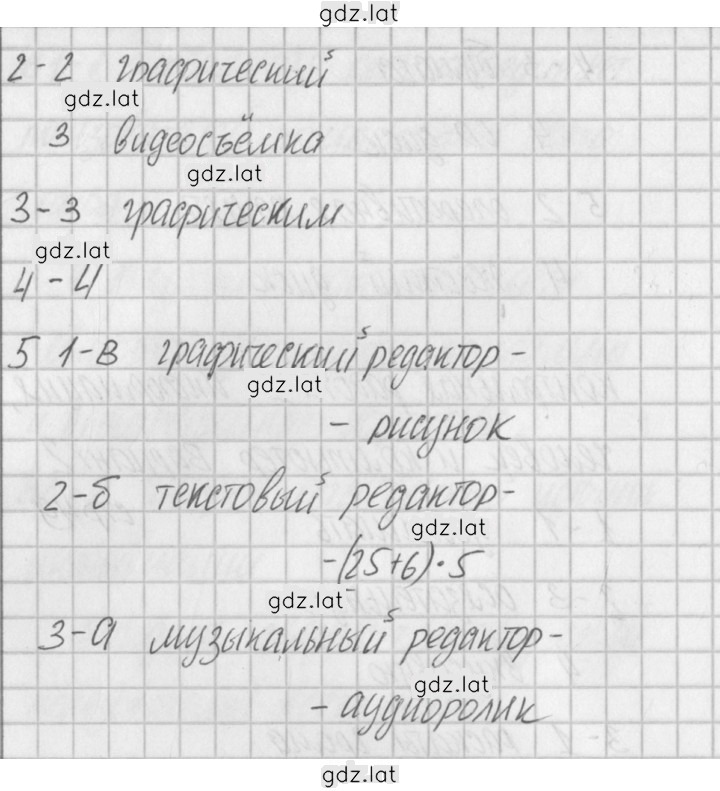 gdz.lat
2-2 графический
gdz.lat
3 видеосъёмка
gdz.lat
3-3 графическим
gdz.lat
4-4
5 1-в графический редактор -
gdz.lat
- рисунок
2-б текстовый редактор-
gdz.lat
-(25+6)·5
gdz.lat
3-а музыкальный редактор-
gdz.lat
- аудиоролик
gdz.lat